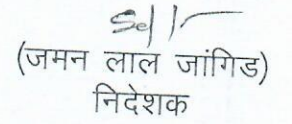 Sd/-
(जमन लाल जांगिड)
निदेशक